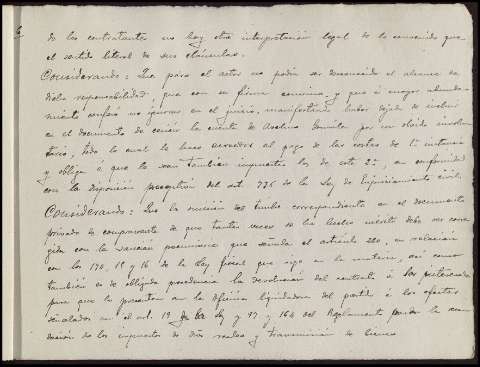 de los contratantes no hay otra interpretación legal de lo convenido que
el sentido literal de sus cláusulas.
Considerando: Que para el actor no podía ser desconocido el alcance de
dicha responsabilidad, que con su firma convino, y que á mayor abunda-
miento confesó no ignorar en el juicio, manifestando haber dejado de incluir
en el documento de cesión la cuenta de Avelino por un olvido involun-
tario, todo lo cual le hace acreedor al pago de las costas de 1ª instancia
y obliga á que le sean también impuestas las de esta 2ª, en conformidad
con la disposición preceptiva del art. 736 de la Ley de Enjuiciamiento civil.
Considerando: Que la omisión del timbre correspondiente en el documento
privado de compraventa de que tantas veces se ha hecho mérito debe ser corre-
gida con la sanción pecuniaria que señala el artículo 220, en relación
con los 190, 19 y 16 de la Ley fiscal que rige en la materia, así como
también es de obligada procedencia la devolución del contrato á
para que lo presenten en la oficina liquidadora del partido á los efectos
señalados en el art. 19 de la Ley y 97 y 164 del Reglamento para la exac-
ción de los impuestos de dros reales y transmisión de bienes